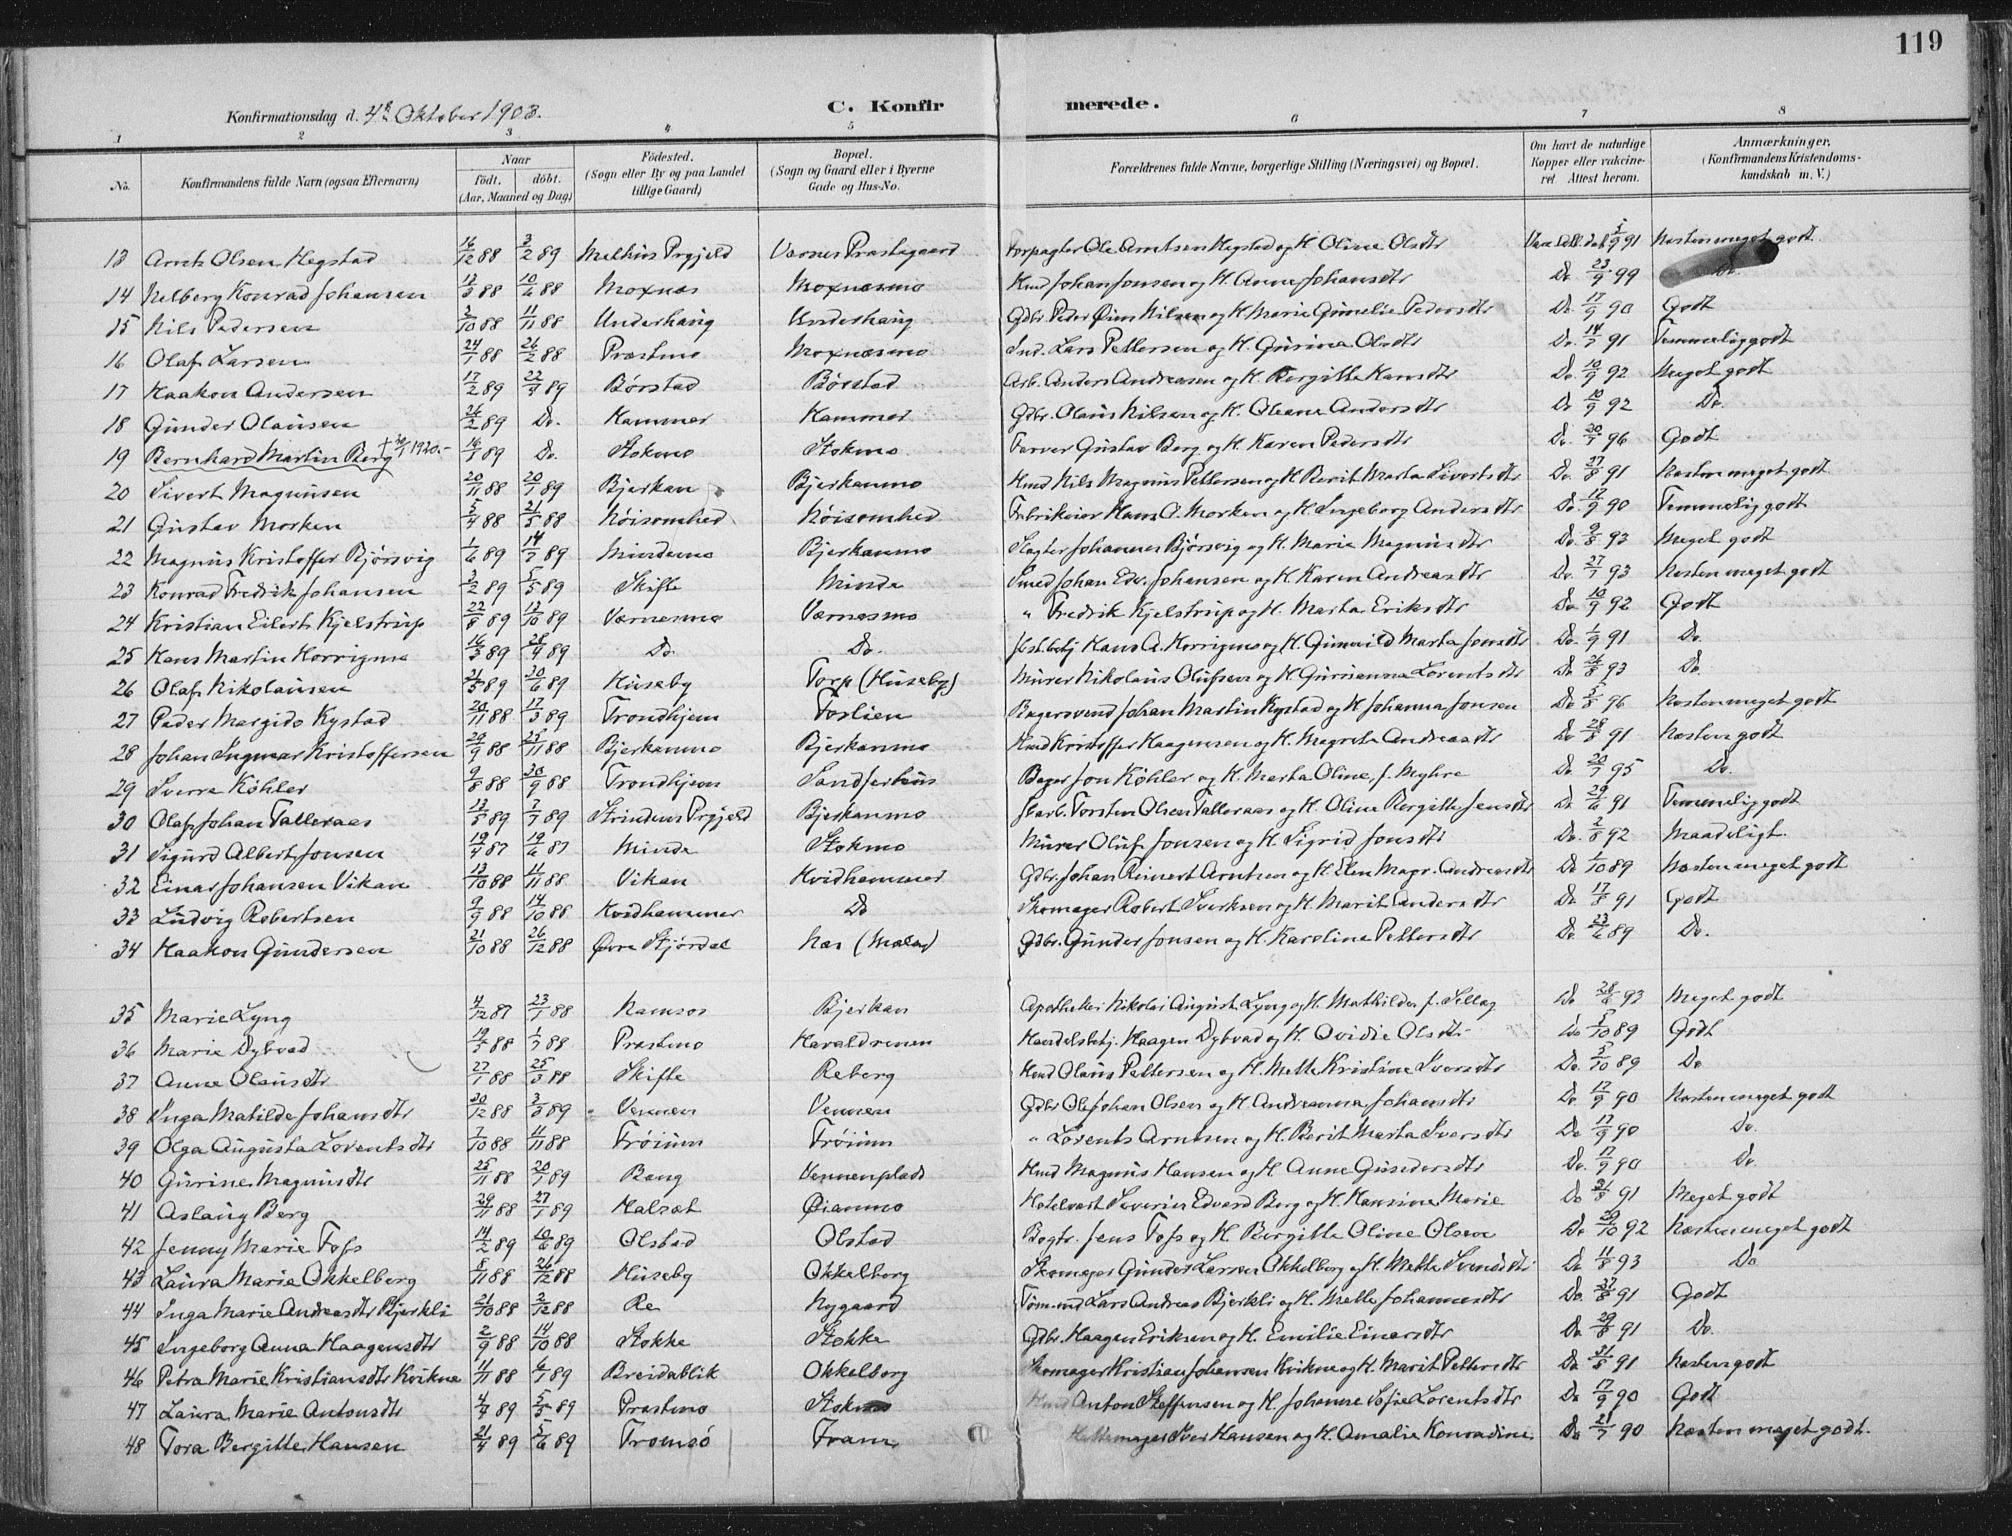 119
Konfirmationsdag d. 4de Oktober 1903. C. Konfirmerede.
1 2 3 4 5 6 7 8
No. Konfirmandens fulde Navn (ogsaa Efternavn) Naar født, døbt. (Aar, Maaned og Dag) Fødested. (Sogn eller By og paa Landet tillige Gaard) Bopæl. (Sogn og Gaard eller i Byerne Gade og Hus-No. Forældrenes fulde Navne, borgerlige Stilling (Næringsvei) og Bopæl. Om havt de naturlige Kopper eller vakcineret. Attest herom. Anmærkninger. (Konfirmandens Kristendomskundskab m. V.)
13 Arnt Olsen Hegstad 16/12 88 3/2 89 Melhus Prgjeld Værnes Præstegaard Forpagter Ole Arntsen Hegstad og H. Oline Olsdtr 5/9 91 Næsten meget godt
14 Helberg Konrad Johansen 12/3 88 10/6 88 Moxnæs Moxnæsmo Hmd Johan Jonsen og H. Anne Johansdtr Do. 23/9 99 Do.
15 Nils Pedersen 2/10 88 11/11 88 Underhaug Underhaug Gdbr. Peder Nilsen og H. Marie Gunelie Pedersdtr Do. 17/9 90 Godt
16 Olaf Larsen 24/1 88 26/2 88 Præstmo Moxnæsmo Ind. Lars Pettersen og H. Gurine Olsdtr Do. 14/7 91 Temmelig godt
17 Haakon Andersen 17/2 89 22/4 89 Børstad Børstad Arb. Anders Andreasen og H. Bergitte Hansdtr Do. 10/9 92 Meget godt
18 Gunder Olausen 26/2 89 Do. Hammer Hammer Gdbr. Olaus Nilsen og H. Oleane Andersdtr Do 10/9 92 Do.
19 Bernhard Martin Berg + 30/1 1920.- 16/1 89 Do. Stokmo Stokmo Farver Gustav Berg og H. Karen Pedersdtr Do. 20/7 96 Godt
20 Sivert Magnusen 20/11 88 20/1 89 Bjerkan Bjerkanmo Hmd Nils Magnus Pettersen og H. Berit Marta Sivertsdtr Do. 27/8 91 Næsten meget godt
21 Gustav Morken 5/4 88 21/5 88 Nøisomhed Nøisomhed Fabrikeier Hans O. Morken og H. Ingeborg Andersdtr Do. 17/9 90 Temmelig godt
22 Magnus Kristoffer Bjørsvig 1/6 89 14/7 89 Mindemo Bjerkanmo Slagter Johannes Bjørsvig og H. Marie Magnusdtr Do. 9/8 93 Meget godt
23 Konrad Fredrik Johansen 3/2 89 5/5 89 Skifte Minde Smed Johan Edv. Johansen og H. Karen Andreasdtr Do. 27/7 93 Næsten meget godt
24 Kristian Eilert Kjelstrup 22/8 89 13/10 89 Værnesmo Værnesmo " Fredrik Kjelstrup og H. Marta Eriksdtr Do 10/9 92 Godt
25 Hans Martin Horrigmo 16/3 89 28/4 89 Do. Do. Hans A. Horrigmo og H. Gunild Marta Jonsdtr Do. 1/9 91 Do.
26 Olaf Nikolausen 21/5 89 30/6 89 Huseby Torp (Huseby) Murer Nikolaus Olufsen og H. Gurianna Lorentsdtr Do 26/8 93 Do.
27 Peder Margido Kystad 20/11 88 17/3 89 Trondhjem Forlien Bagersvend Johan Martin Kystad og H. Johanna Jonsen Do 5/8 96 Næsten meget godt
28 Johan Ingmar Kristoffersen 29/9 88 25/11 88 Bjerkanmo Bjerkanmo Hmd Kristoffer Haagensen og H. Magreta Andreasdtr Do 28/8 91 Næsten godt
29 Sverre Køhler 9/8 88 30/9 88 Trondhjem Sandferhus Bager Jon Køhler og H. Marta Oline, f. Myhre Do. 20/7 95 Do.
30 Olaf Johan Talleraas 13/5 89 7/7 89 Strindens Prgjeld Bjerkanmo Torsten Olsen Talleraas og H. Oline Bergitte Jensdtr Do. 29/6 91 Temmelig godt
31 Sigurd Albert Jonsen 19/4 87 19/6 87 Minde Stokmo Murer Oluf Jonsen og H. Sigrid Jonsdtr Do. 2/8 92 Maadeligt.
32 Einar Johansen Vikan 13/10 88 11/11 88 Vikan Kvidhammer Gdbr. Johan Reinert Arntsen og H. Elen Magr. Andreasdtr Do 1/10 89 Næsten meget godt
33 Ludvig Robertsen 9/9 88 14/10 88 Kvidhammer Do Skomager Robert Sverksen og H. Marit Andersdtr Do 17/8 91 Godt
34 Haakon Gundersen 21/10 88 26/12 88 Øvre Stjørdal Næs Gdbr. Gunder Jonsen og H. Karoline Pettersdtr Do 23/6 89 Do.
35 Marie Lyng 4/12 87 23/1 88 Namsos Bjerkan Apotheker Nikolai August Lyng og H. Mathilde f. Sellæg Do 28/6 93 Meget godt
36 Marie Dybvad 19/5 88 1/7 88 Præstmo Haraldreinen Handelsbetj. Haagen Dybvad og H. Ovidie Olsdtr Do 5/10 89 Godt
37 Anne Olausdtr 27/1 88 25/3 88 Skifte Reberg Hmd Olaus Pettersen og H. Mette Kristine Iversdtr Do. 5/10 89 Do
38 Inga Matilde Johansdtr 30/12 88 3/3 89 Vennen Vennen Gdbr Ole Johan Olsen og H. Andreanna Johansdtr Do. 17/9 90 Næsten meget godt
39 Olga Augusta Lorentsdtr 7/10 88 11/11 88 Frøium Frøium " Lorents Arntsen og H. Berit Marta Iversdtr Do 17/9 90 Do.
40 Gurine Magnusdtr 25/11 88 20/1 89 Bang Vennenplads Hmd Magnus Hansen og H. Anne Gundersdtr Do. 17/9 90 Do.
41 Aslaug Berg 29/11 88 27/1 89 Halset Øianmo Hotelvært Severin Edvard Berg og H. Hansine Marie Do 31/8 91 Meget godt
42 Jenny Marie Foss 14/2 89 10/6 89 Olstad Olstad Bogtr. Jens Foss og H. Bergitte Oline Olsen Do. 29/10 92 Næsten meget godt
43 Laura Marie Okkelberg 8/11 88 26/12 88 Huseby Okkelberg Skomager Gunder Larsen Okkelberg og H. Mette Do 11/8 93 Do
44 Inga Marie Andreasdtr Bjerkli 21/10 88 2/12 88 Re Nygaard Tømmd Lars Andreas Bjerkli og H. Mette Johannesdtr Do. 27/8 91 Godt
45 Ingeborg Anna Haagensdtr 2/9 88 14/10 88 Stokke Stokke Gdbr. Haagen Eriksen og H. Emilie Einarsdtr Do. 29/8 91 Do.
46 Petra Marie Kristiansdtr Kvikne 11/11 88 6/1 89 Breidablik Okkelberg Skomager Kristian Johansen Kvikne og H. Marit Pettersdtr Do 31/8 91 Næsten godt
47 Laura Marie Antonsdtr 4/4 89 5/5 89 Præstmo Stokmo Hmd Anton Steffensen og H. Johanne Sofie Lorentsdtr Do 17/9 90 Godt
48 Tora Bergitte Hansen 21/4 89 5/6 89 Tromsø Fram Iver Hansen og H. Amalie Konradine Do 21/7 90 Næsten meget godt.